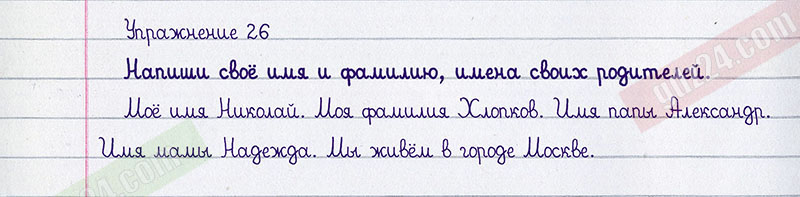 Упражнение 26
Напиши своё имя и фамилию, имена своих родителей.
Моё имя Николай. Моя фамилия Хлопков. Имя папы Александр.
Имя мамы Надежда. Мы живём в городе Москве.